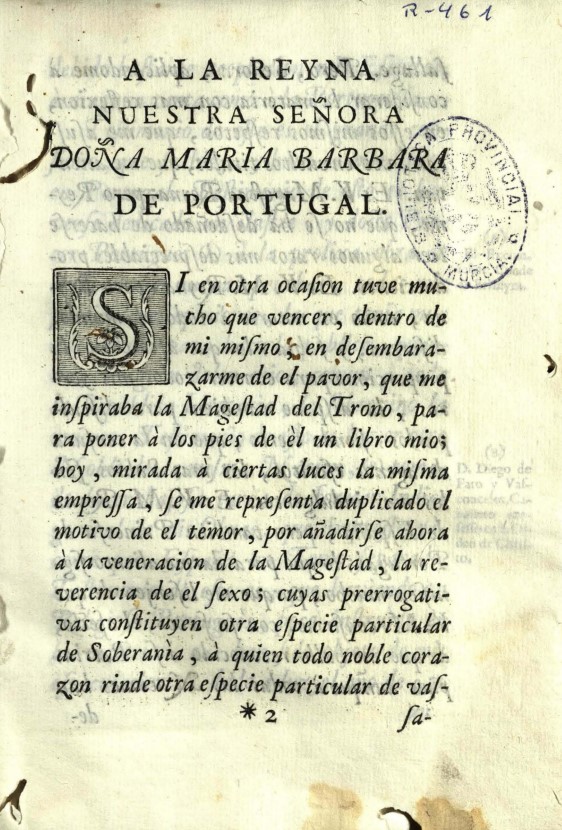 R-461
A LA REYNA
NUESTRA SEÑORA
DOÑA MARIA BARBARA
DE PORTUGAL.
SI en otra ocaſion tuve mu-
cho que vencer, dentro de
mi miſmo; en deſembara-
zarme de el pavor, que me
inſpiraba la Mageſtad del Trono, pa-
ra poner à los pies de èl un libro mio;
hoy, mirada à ciertas luces la miſma
empreſſa, ſe me repreſenta duplicado el
motivo de el temor, por añadirſe ahora
à la veneracion de la Mageſtad, la re-
verencia de el ſexo; cuyas prerrogati-
vas conſtituyen otra eſpecie particular
de Soberanìa, à quien todo noble cora-
zon rinde otra eſpecie particular de vaſ-
* 2
ſa-
PROVINCIAL
MURCIA
(a)
D. Diego de
Faro y Vaſ-